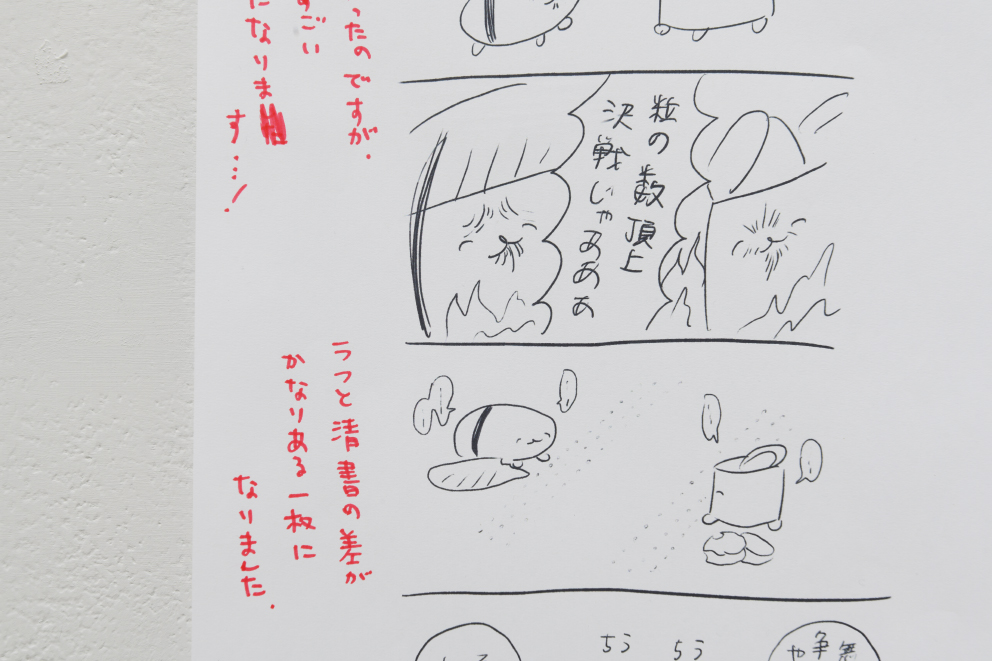 ったのですが.
すごい
になりま
す…!
粒の数頂上
決戦じゃああぁ
ラフと清書の差が
かなりある一枚に
なりました.
無
争
や
ちう
ちう